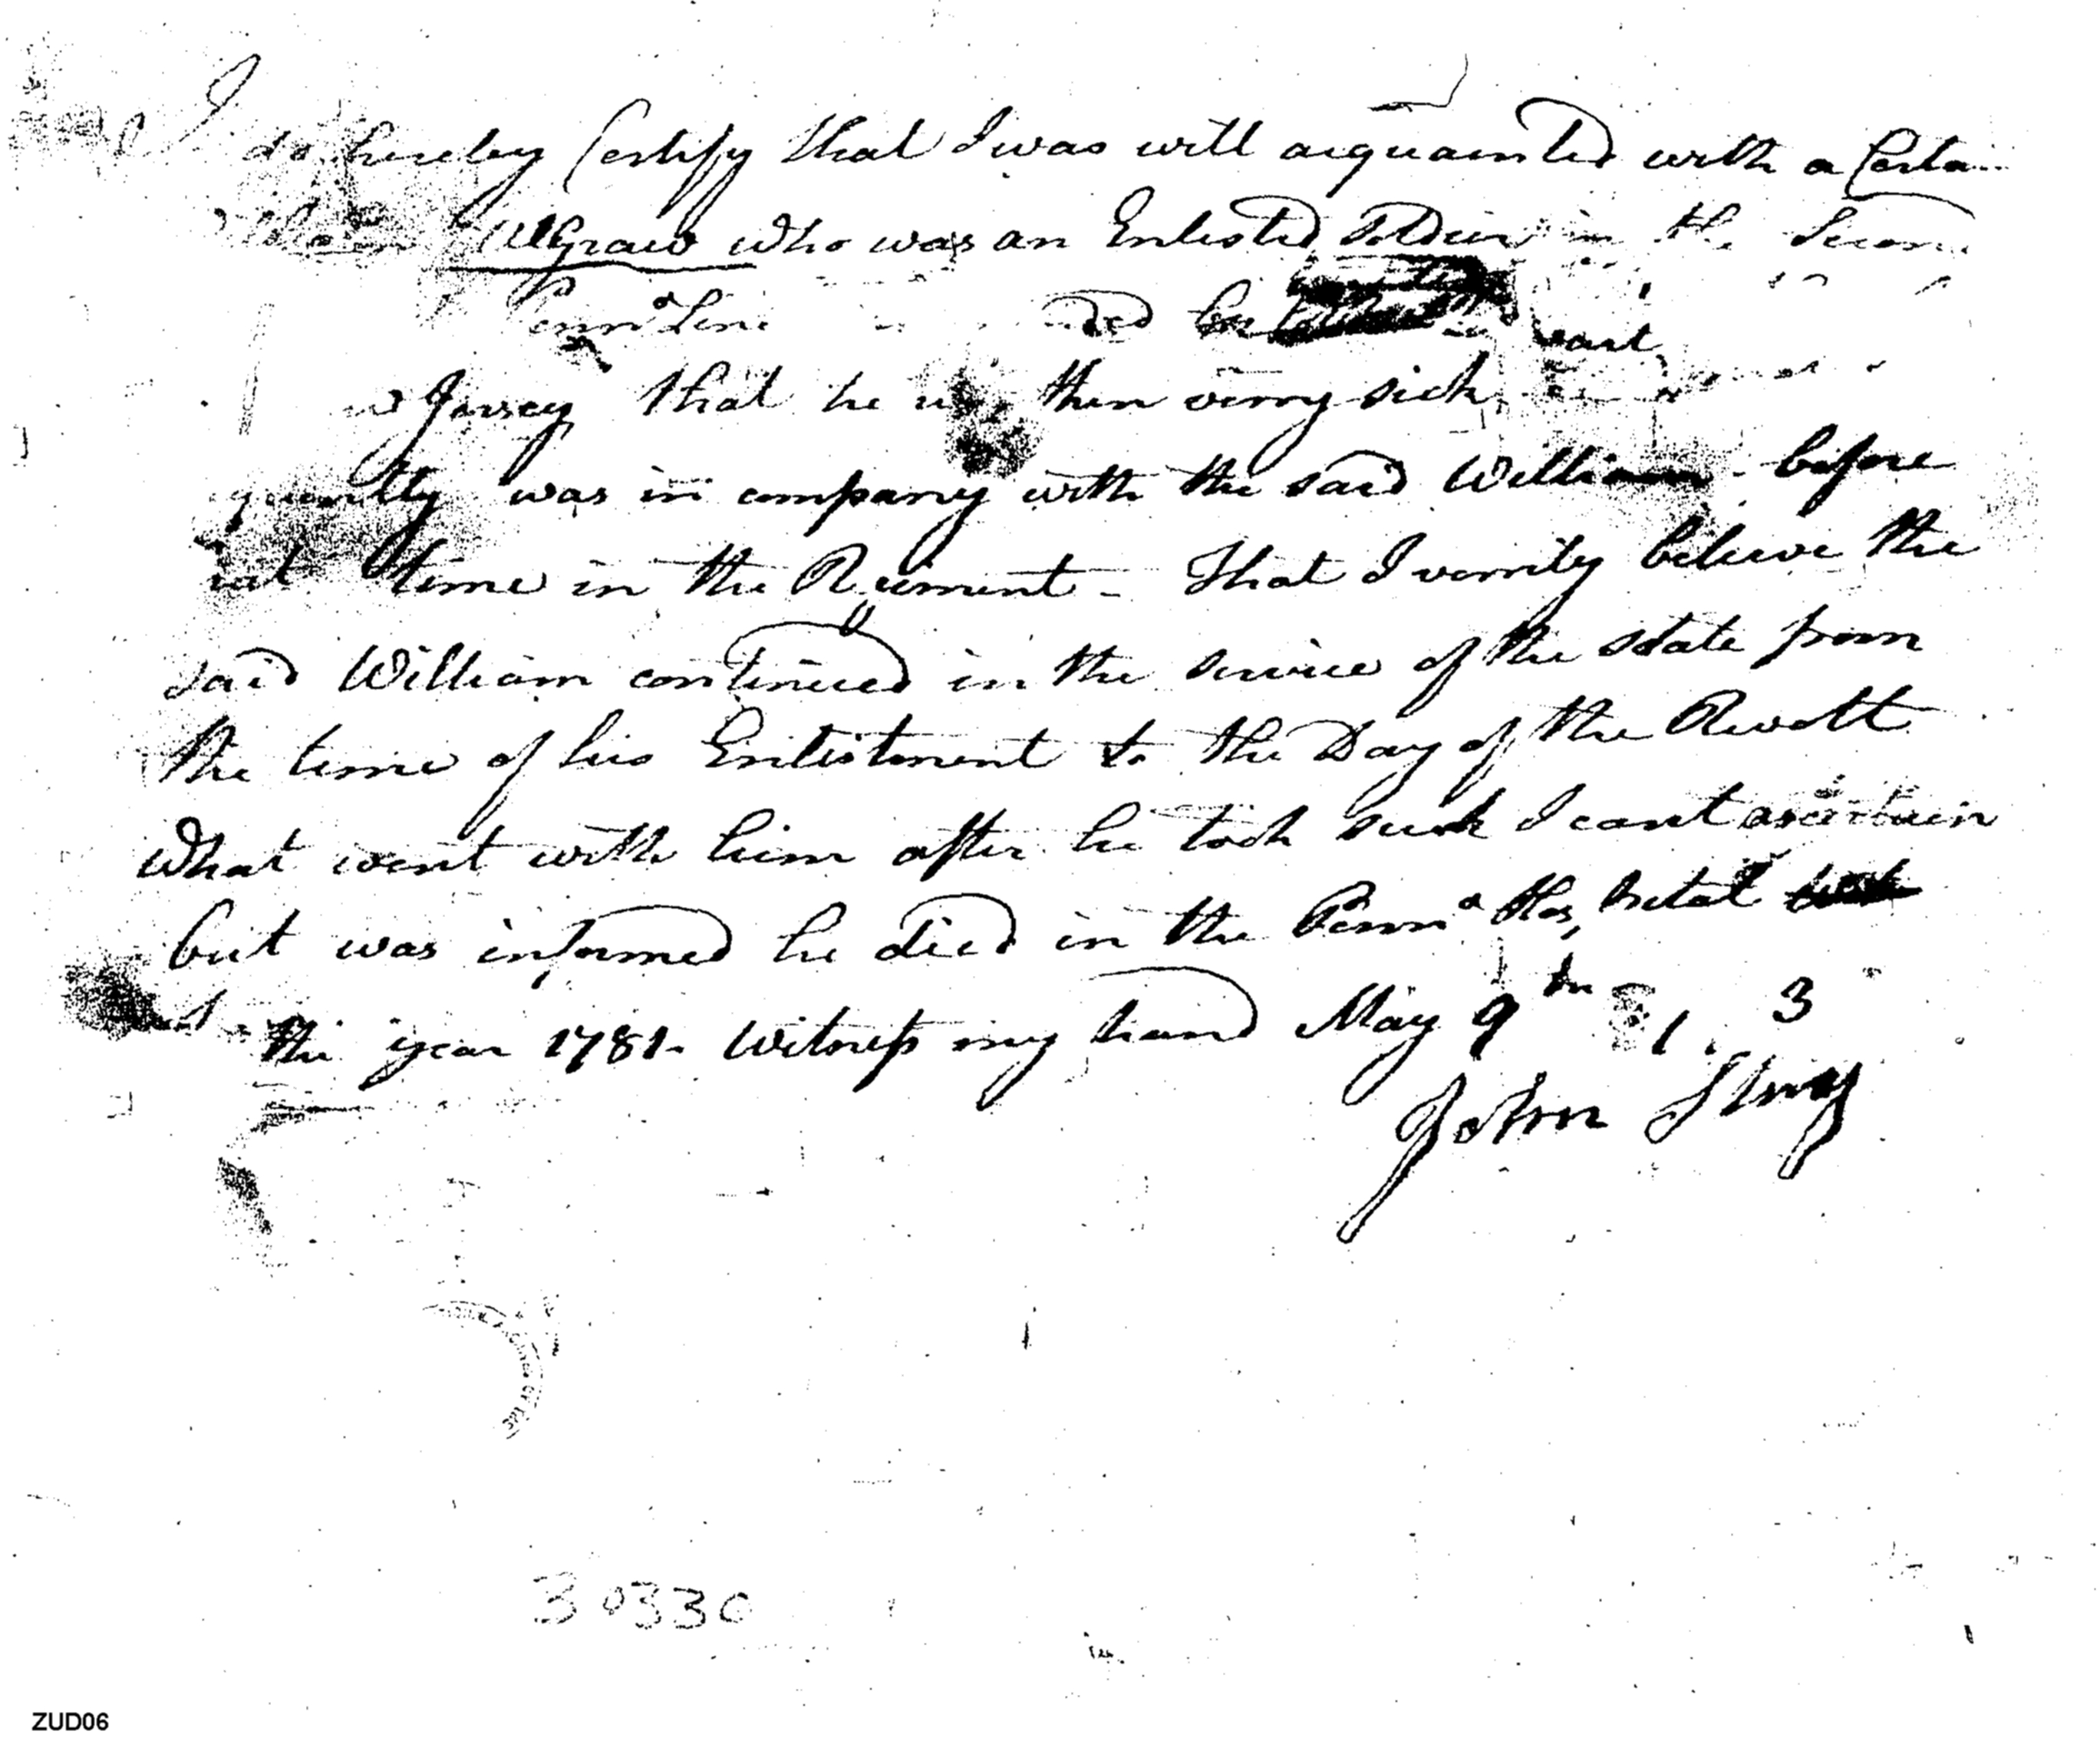 I do hereby Certify that I was will acquainted with a Certain
William McGraw who was an Enlisted Soldier in the Secon
Penna Line
Jersey that he was then verry sick
quently was in company with the said William before
time in the Regiment - That I verrily beleive the
said William continued in the service of the state from
the time of his Enlistment to the Day of the Revolt
What went with him after he took sick I cant ascertain
but was informed he died in the Penna Hospital
the year 1781. Witness my hand May 9th
John
30330
ZUD06